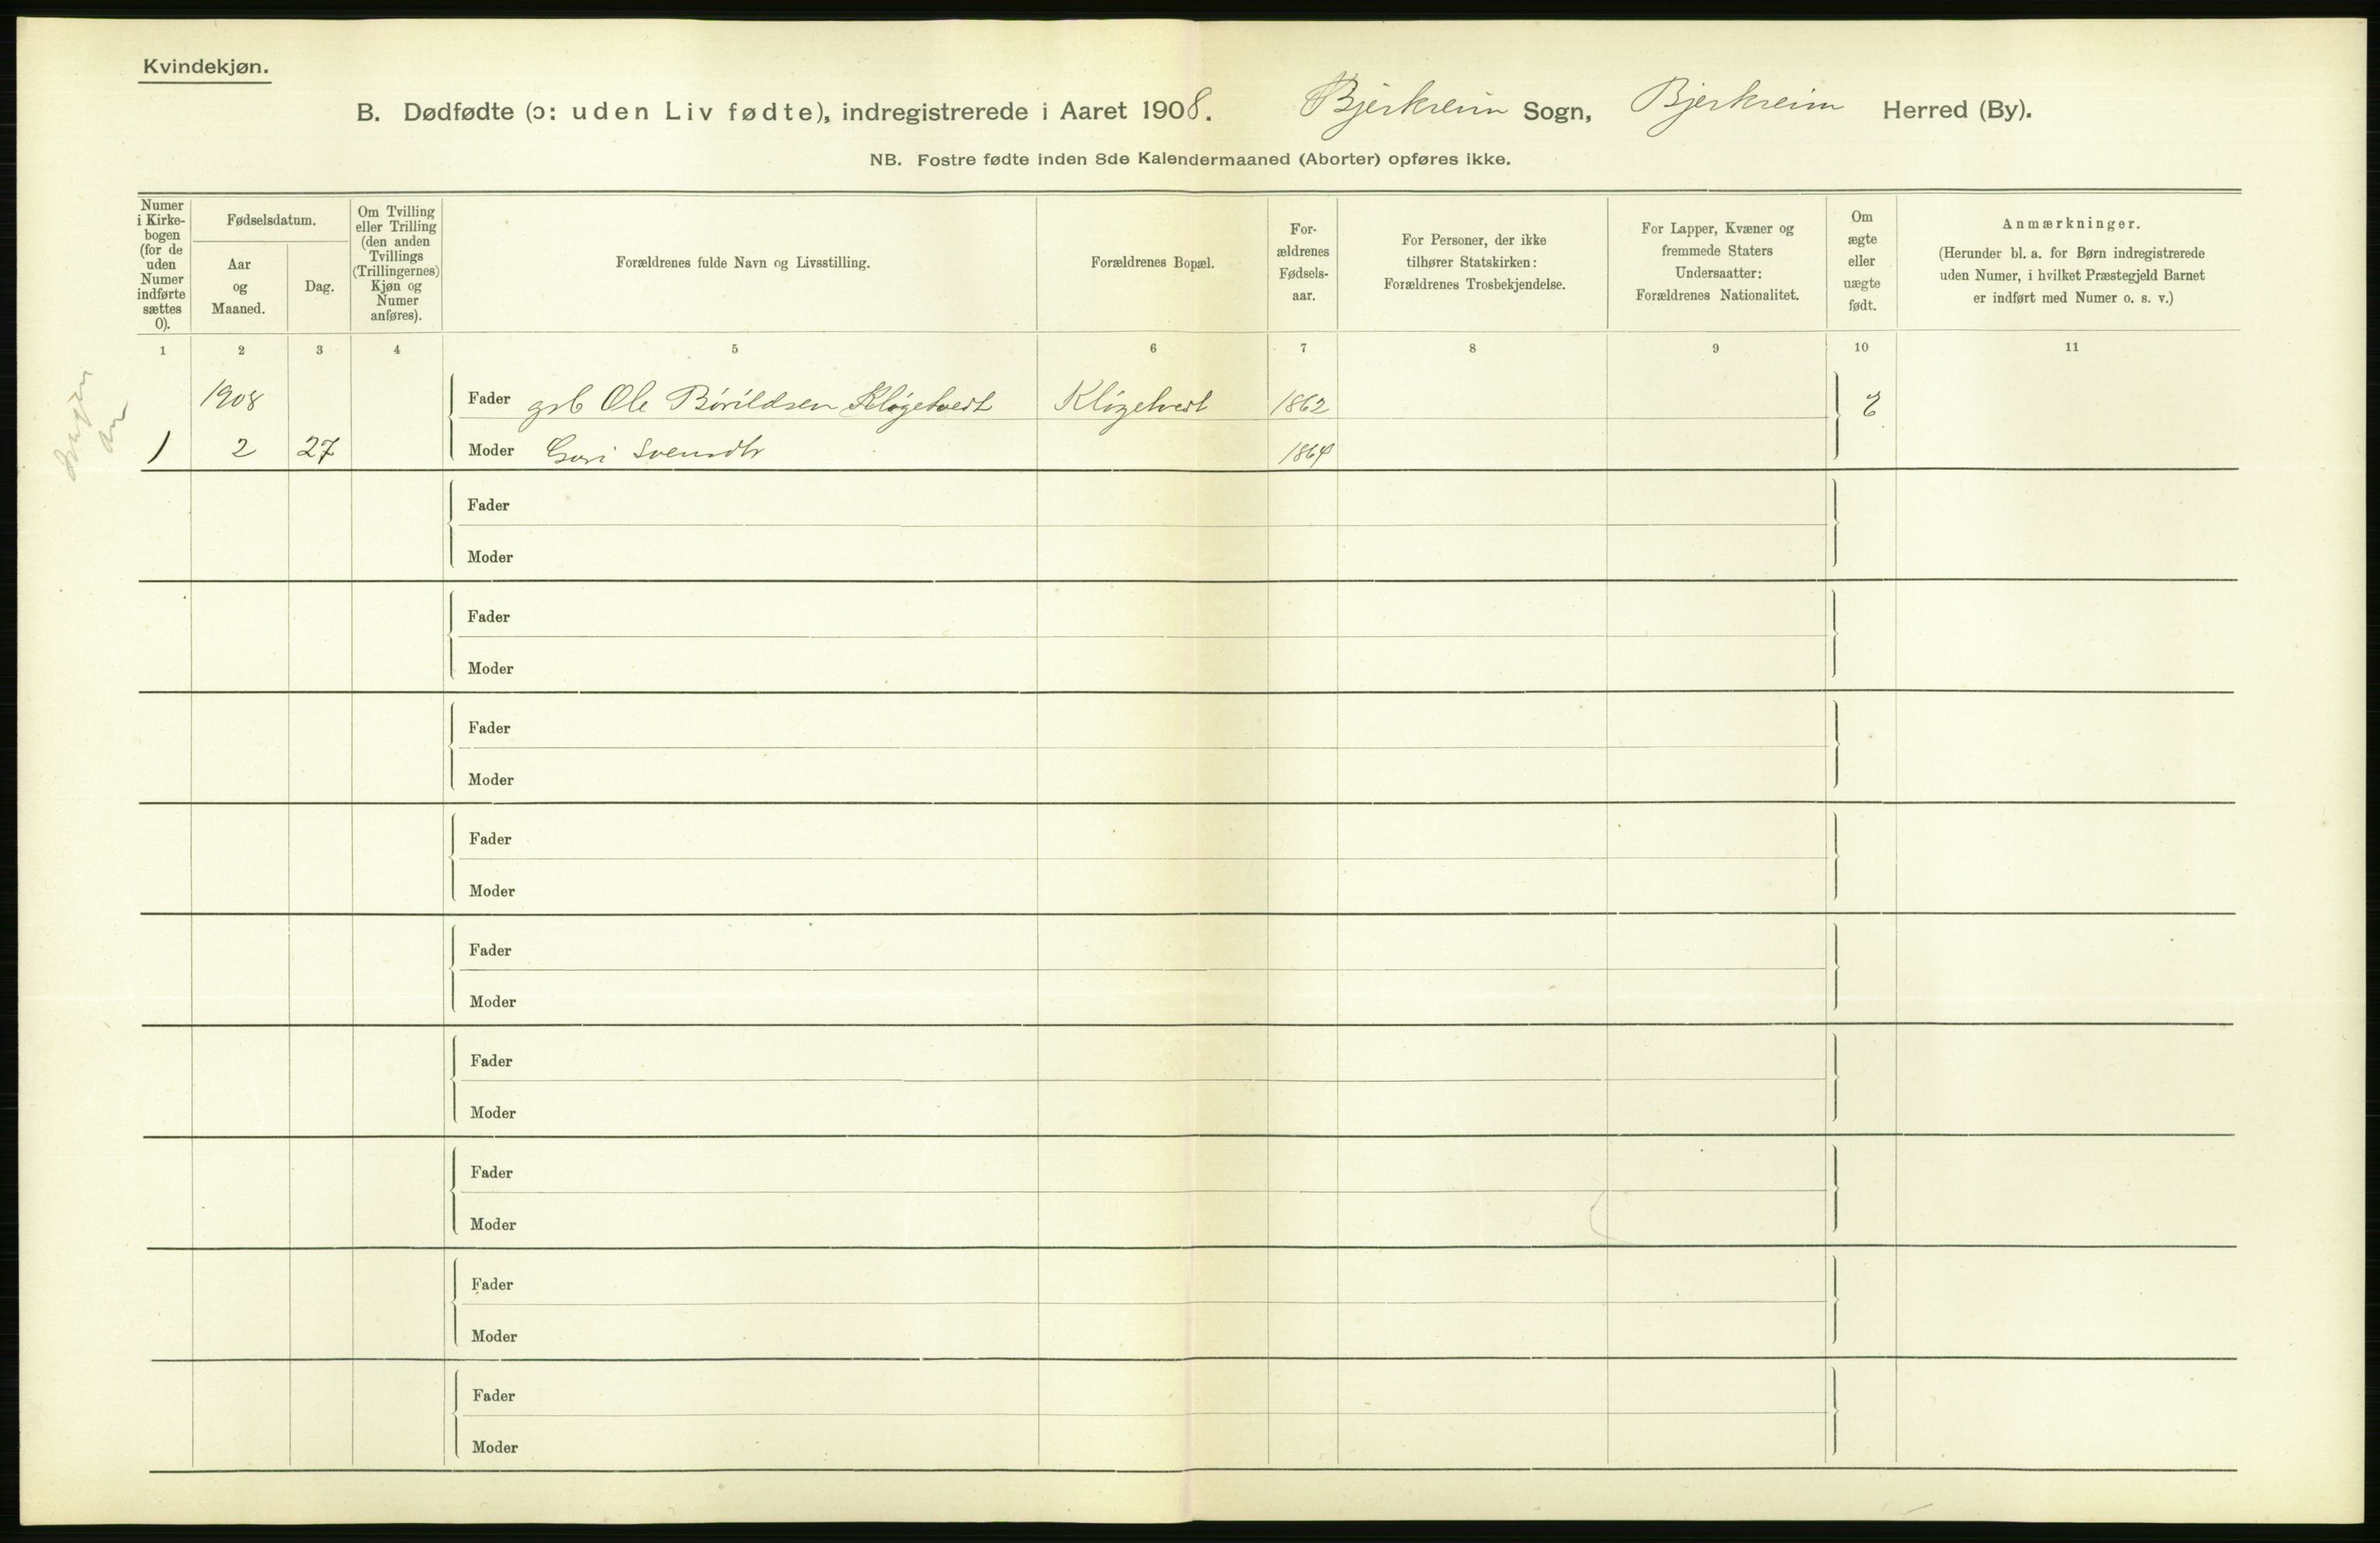 Kvindekjøn.
B. Dødfødte (ɔ: uden Liv fødte), indregistrerede i Aaret 1908. Bjerkreim Sogn, Bjerkreim Herred (By).
NB. Fostre fødte inden 8de Kalendermaaned (Aborter) opføres ikke.
Numer
i Kirke-
bogen
(for de
uden
Numer
indførte
sættes
0).
Fødselsdatum.
Aar
og
Maaned.
Dag.
Om Tvilling
eller Trilling
(den anden
Tvillings
(Trillingernes)
Kjøn og
Numer
anføres).
Forældrenes fulde Navn og Livsstilling.
Forældrenes Bopæl.
For-
ældrenes
Fødsels-
aar.
For Personer, der ikke
tilhører Statskirken:
Forældrenes Trosbekjendelse.
For Lapper, Kvæner og
fremmede Staters
Undersaatter:
Forældrenes Nationalitet.
Om
ægte
eller
uægte
født.
Anmærkninger.
(Herunder bl. a. for Børn indregistrerede
uden Numer, i hvilket Præstegjeld Barnet
er indført med Numer o. s. v.)
1 2 3 4 5 6 7 8 9 10 11
1908 Fader grb Ole Börildsen Kløgetvedt Kløgetvedt 1862 E
1 2 27 Moder Guri Svendtr 1864
Fader
Moder
Fader
Moder
Fader
Moder
Fader
Moder
Fader
Moder
Fader
Moder
Fader
Moder
Fader
Moder
Fader
Moder